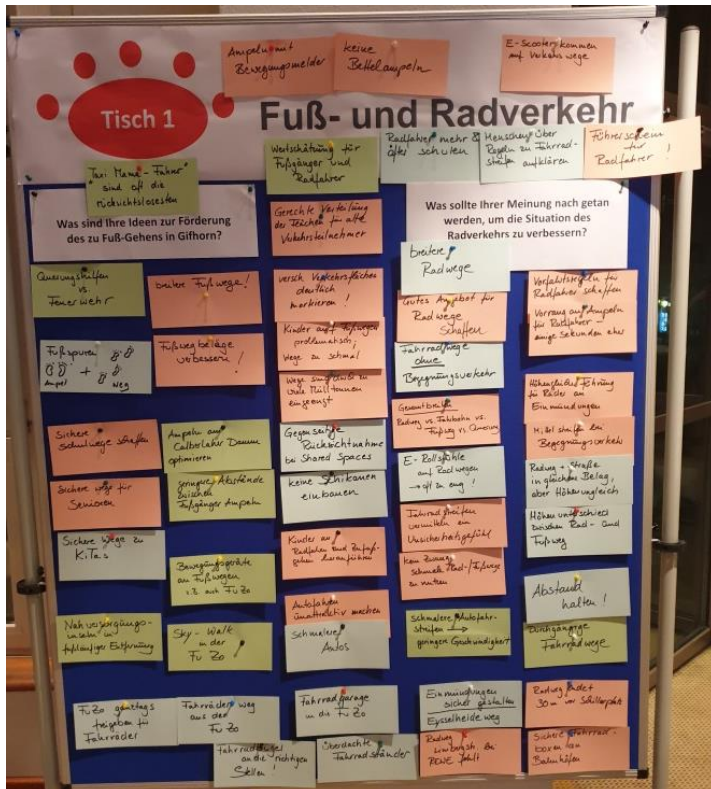 Ampeln mit
Bewegungsmelder
keine
Bettelampeln
E-Scooter kommen
auf Verkehrswege
Tisch 1
Fuß- und Radverkehr
"Taxi Mama-Fahrer"
sind oft die
rücksichtslosesten
Wertschätzung für
Fußgänger und
Radfahrer
Radfahrer mehr &
öfter schulen
Menschen über
Regeln zu Fahrrad-
streifen aufklären
Führerschein
für
Radfahrer !
Was sind Ihre Ideen zur Förderung
des zu Fuß-Gehens in Gifhorn?
Gerechte Verteilung
der Flächen für alle
Verkehrsteilnehmer
Was sollte Ihrer Meinung nach getan
werden, um die Situation des
Radverkehrs zu verbessern?
Querungshilfen
vs.
Feuerwehr
breitere Fußwege !
versch. Verkehrsflächen
deutlich
markieren !
breitere
Radwege
Gutes Angebot für
Radwege
schaffen
Vorfahrtsregeln für
Radfahrer schaffen
Vorrang an Ampeln
für Radfahrer -
einige Sekunden eher
Fußspuren
+
Ampel
weg
Fußwegbeläge
verbessern !
Kinder auf Fußwegen
problematisch,
Wege zu schmal
Wege sind durch zu
viele Mülltonnen
eingeengt
Fahrradwege
ohne
Begegnungsverkehr
Gesamtbreiten
Radweg vs. Fahrbahn vs.
Fußweg vs. Querung
Höhengleiche Führung
für Räder an
Einmündungen
Mittelstreifen bei
Begegnungsverkehr
Sichere
Schulwege schaffen
Ampeln am
Calberlaher Damm
optimieren
Gegenseitige
Rücksichtnahme
bei Shared Spaces
E-Rollstühle
auf Radwegen
→ oft zu eng !
Radweg + Straße
in gleichem Belag,
aber Höhenungleich
Sichere Wege für
Senioren
geringere Abstände
zwischen
Fußgänger Ampeln
keine Schikanen
einbauen
Fahrradstreifen
vermitteln ein
Unsicherheitsgefühl
Höhenunterschied
zwischen Rad- und
Fußweg
Sichere Wege zu
KiTas
Bewegungsgeräte
an Fußwegen
z.B. auch FuZo
Kinder an
Radfahren und Zufuß-
gehen heranführen
Kein Zwang
schmale Rad-/Fußwege
zu nutzen
Abstand
halten !
Nahversorgungs-
inseln in
fußläufiger Entfernung
Sky-Walk
in der
FuZo
Autofahren
unattraktiv machen
Schmalere
Autos
Schmalere Autofahr-
streifen →
geringere Geschwindigkeit
Durchgängige
Fahrradwege
FuZo ganztags
freigeben für
Fahrräder
Fahrräder weg
aus der
FuZo
Fahrradgarage
in die FuZo
Einmündungen
sicher gestalten
Eysselheideweg
Radweg endet
30m vor Schillerplatz
an die richtigen
Stellen !
überdachte
Fahrradständer
Radweg
Limbergstr. bei
fehlt
Sichere Fahrrad-
boxen an
Bahnhöfen